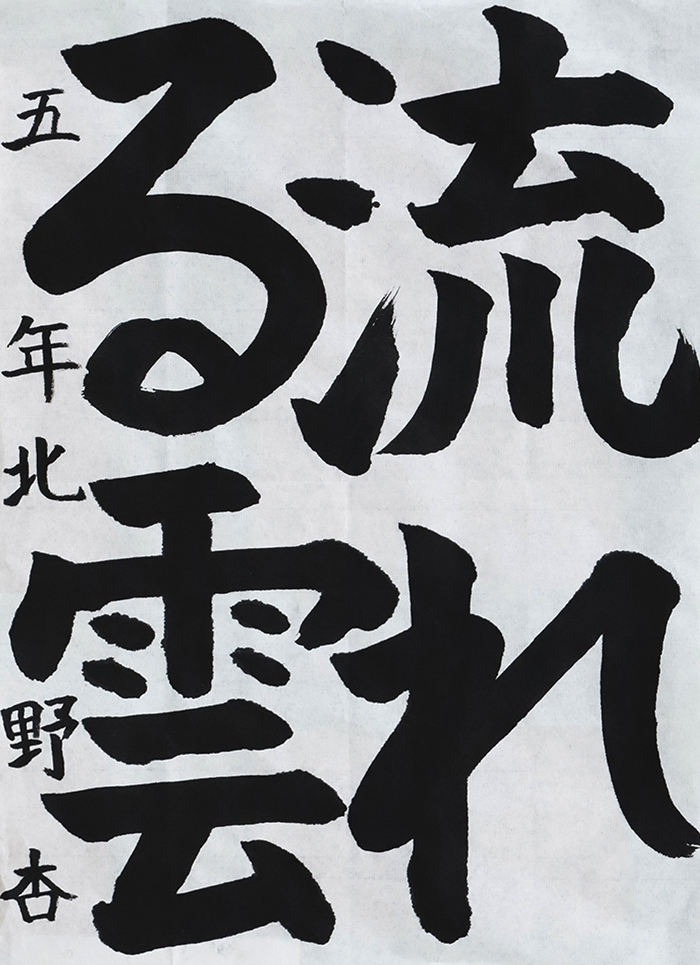 流れ
る雲
五年北野杏